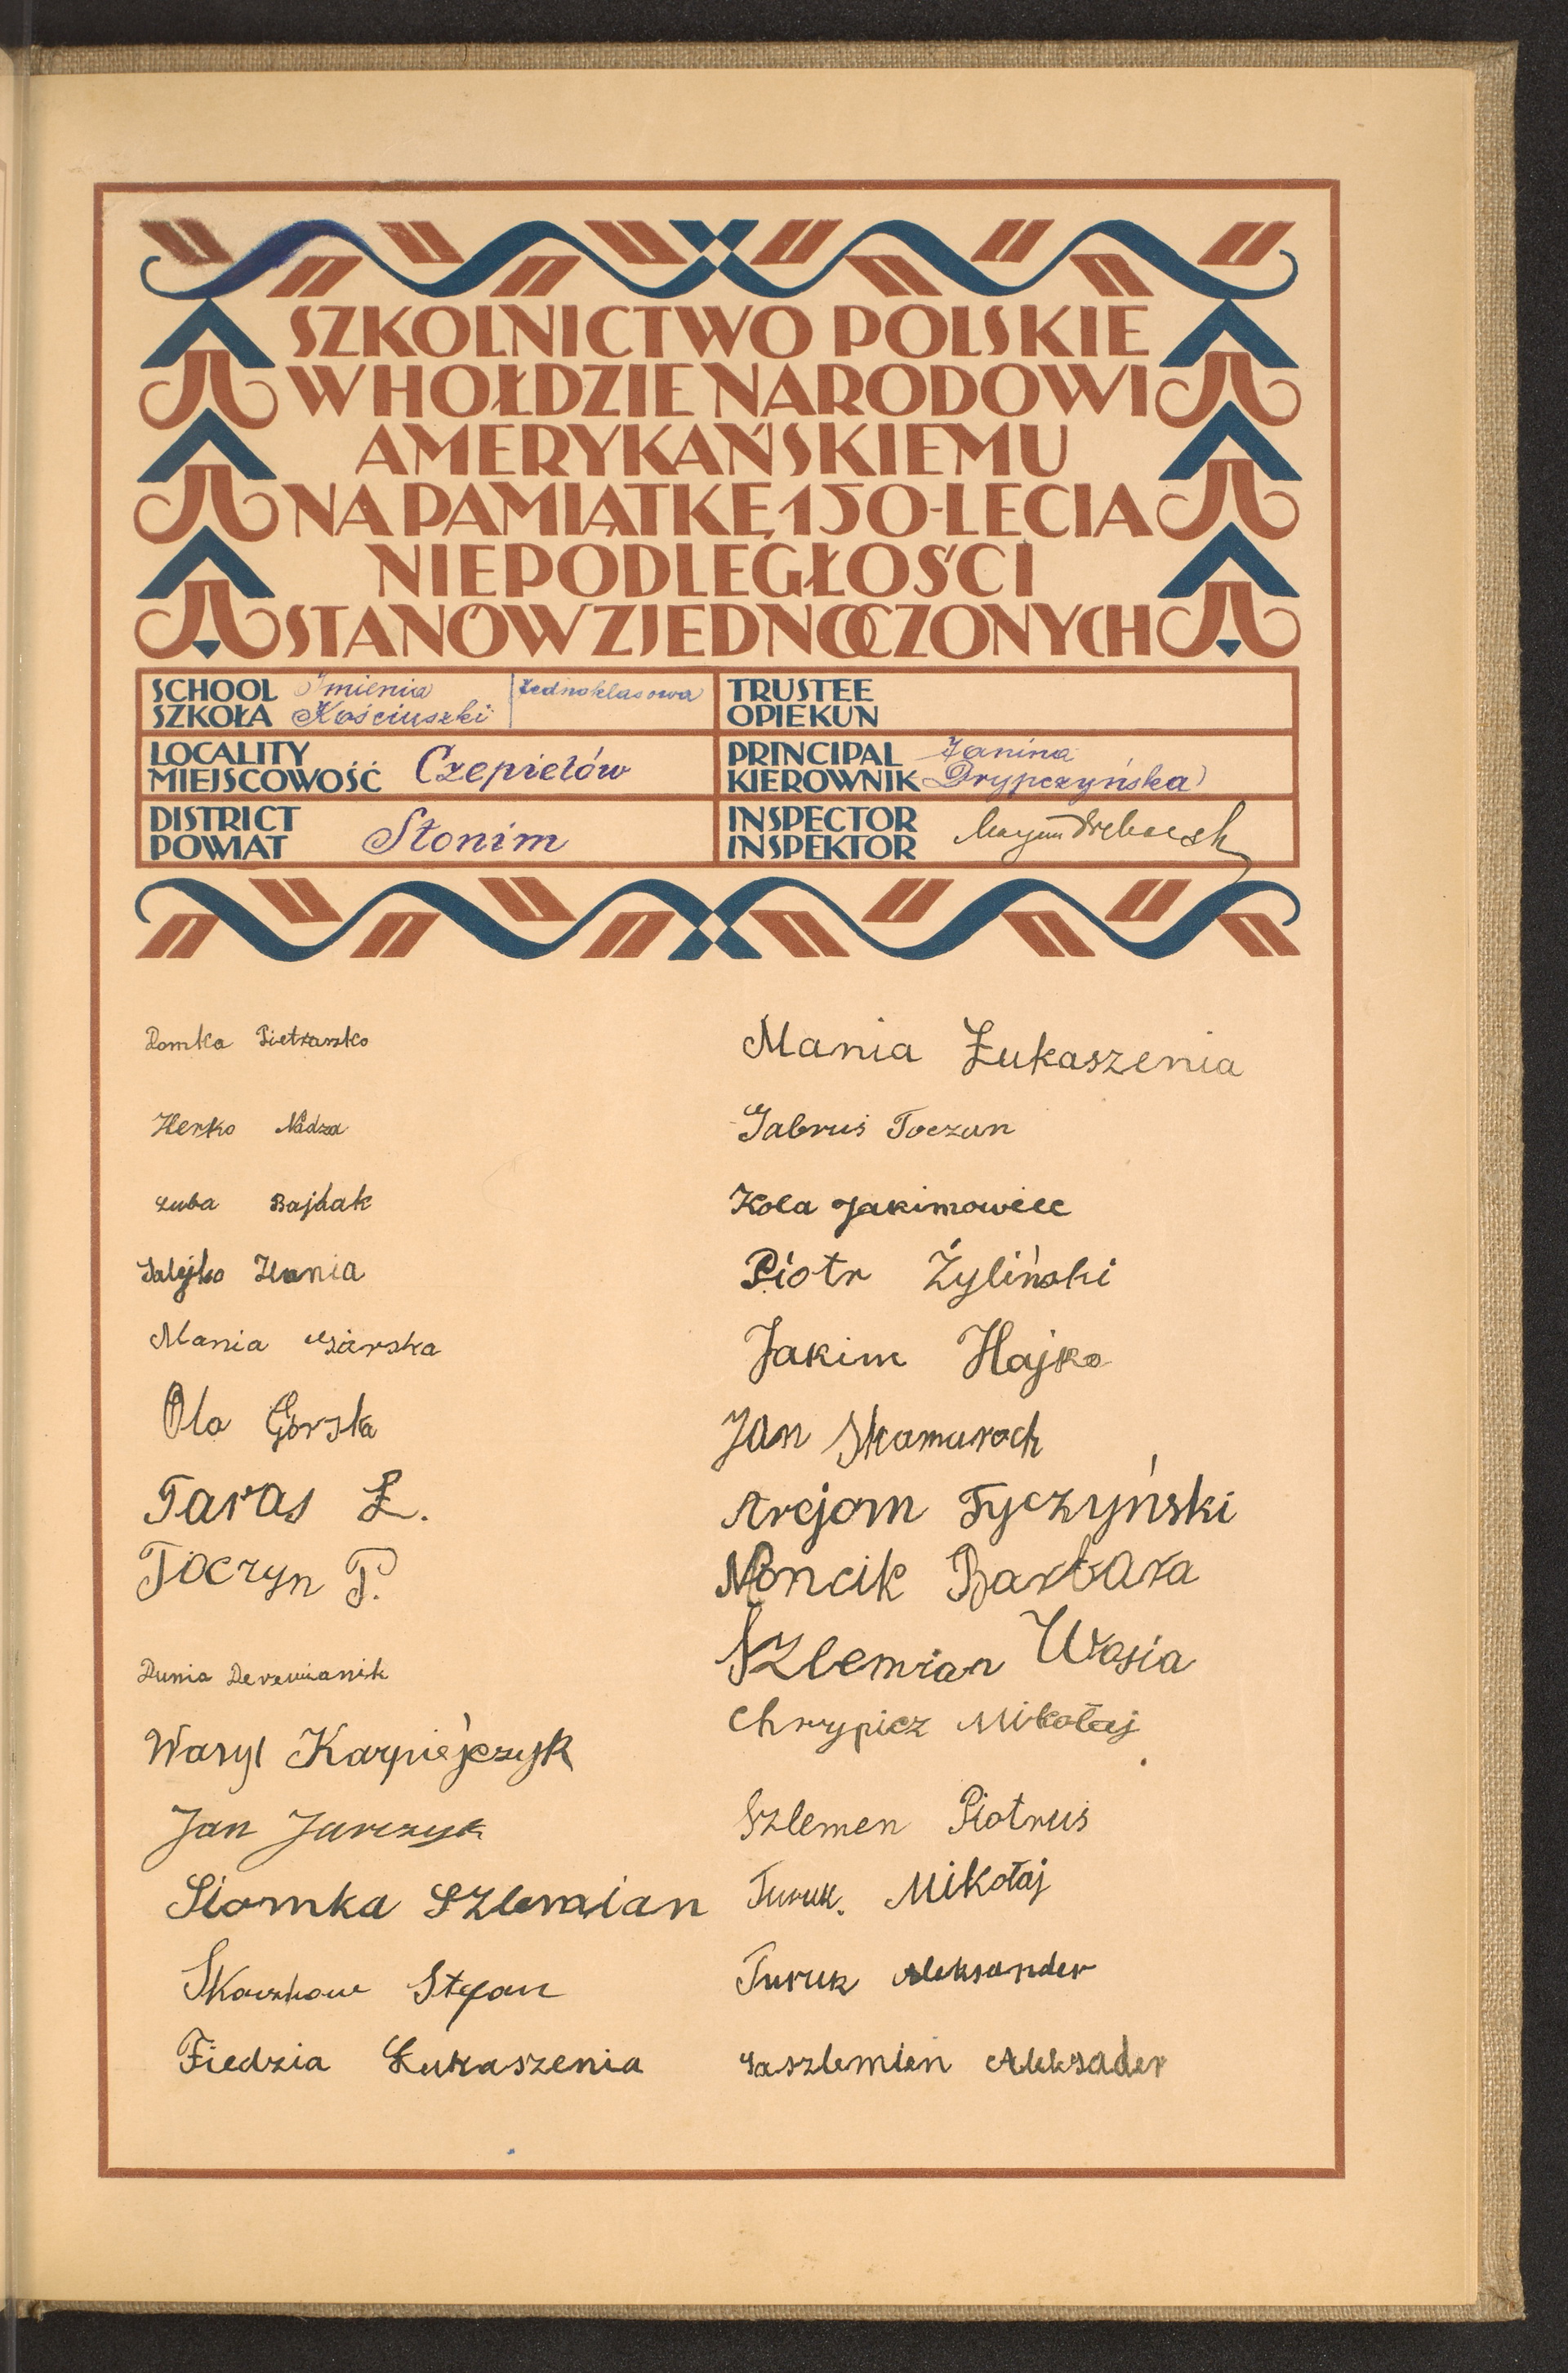 SZKOLNICTWO POLSKIE
W HOŁDZIE NARODOWI
AMERYKAŃSKIEMU
NA PAMIĄTKĘ 150-LECIA
NIEPODLEGŁOŚCI
STANÓW ZJEDNOCZONYCH
SCHOOL
SZKOŁA
Imienia
Kościuszki
Jednoklasowa
TRUSTEE
OPIEKUN
LOCALITY
MIEJSCOWOŚĆ
Czepielów
PRINCIPAL
KIEROWNIK
Janina
Drypczyńska
DISTRICT
POWIAT
Słonim
INSPECTOR
INSPEKTOR
Domka Pietraszko
Herko Nidza
Łuba Bajdak
Hania
Mania
Ola Górska
Taras Ł.
Toczyn T.
Dunia Derewianik
Wasyl Karpiejczyk
Jan Jurczyk
Siomka Szlemian
Stefan
Fiedzia Łukaszenia
Mania Łukaszenia
Gabruś Toczun
Kola Jakimowicc
Piotr Żyliński
Jakim Hajko
Jan Skamaroch
Arcjom Tyczyński
Moncik Barbara
Szlemian Wasia
Chrypicz Mikołaj
Szlemen Piotruś
Turuk. Mikołaj
Turuk Aleksander
Saszlemien Aleksader